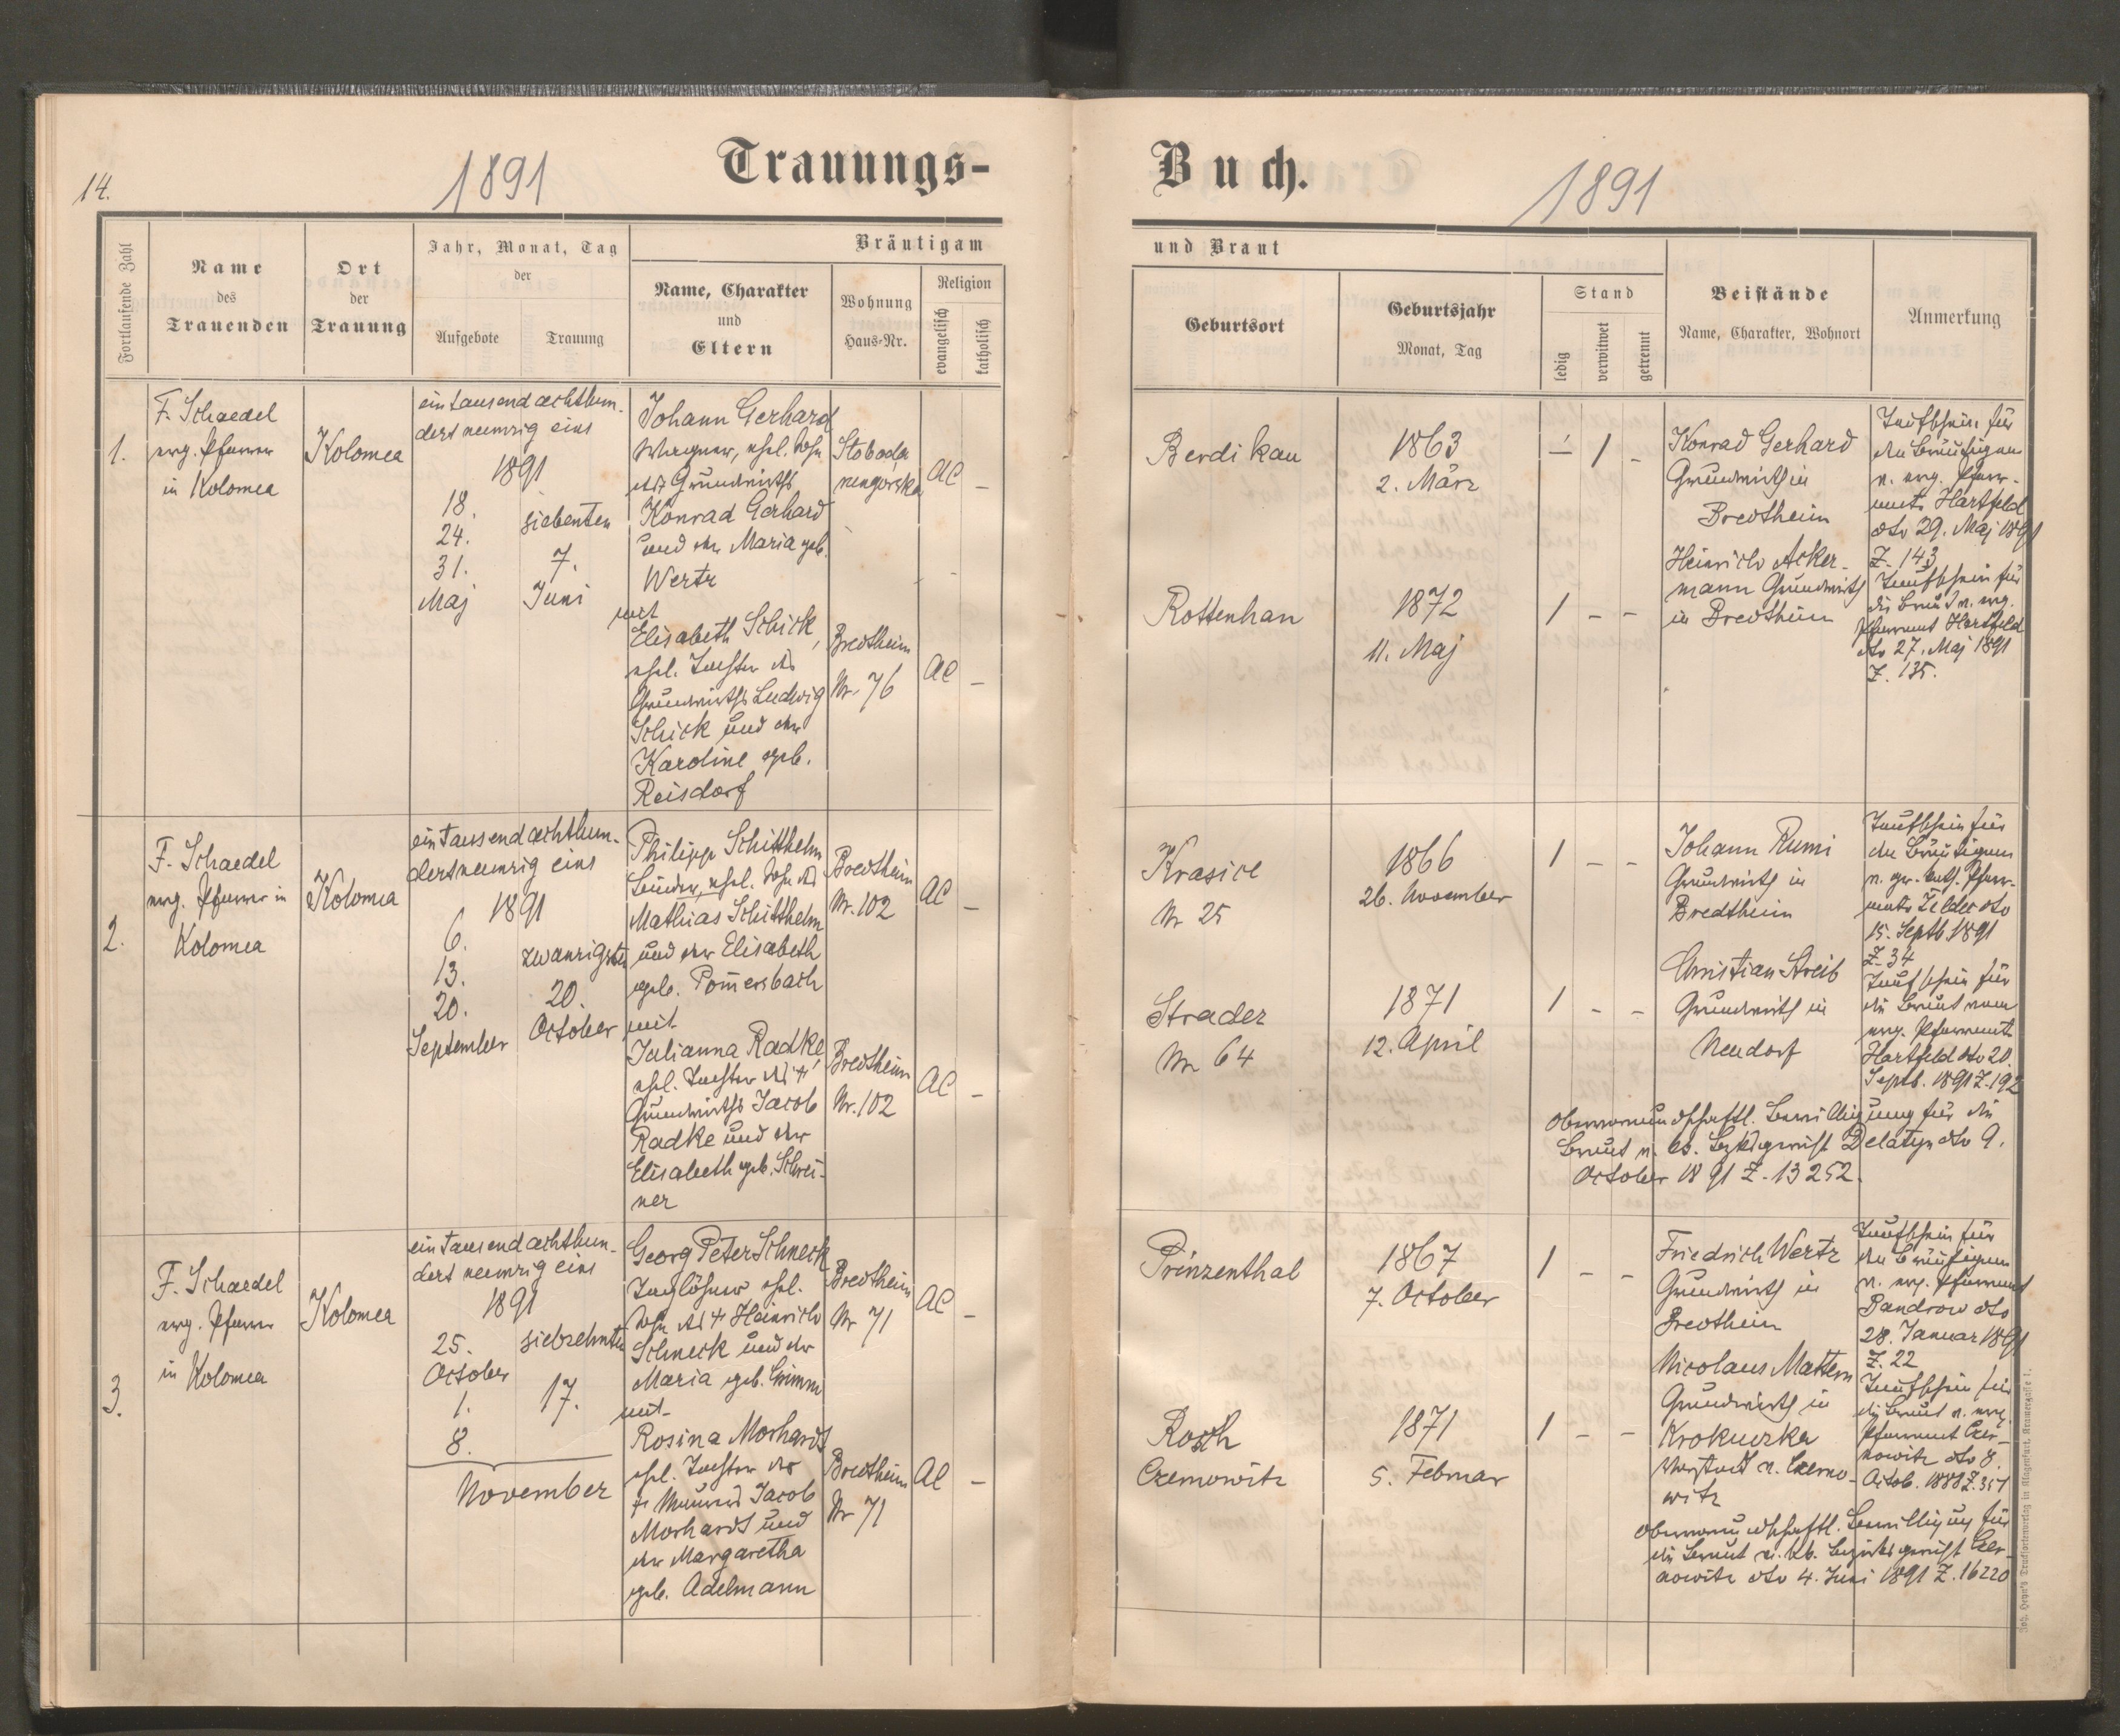 14.
1891
Trauungs-
Buch.
1891
Fortlaufende Zahl
Name
des
Trauenden
Ort
der
Trauung
Jahr, Monat, Tag
der
Aufgebote
Trauung
Bräutigam
Name, Charakter
und
Eltern
Wohnung
Haus-Nr.
Religion
evangelisch
katholisch
und Braut
Geburtsort
Geburtsjahr
Monat, Tag
Stand
ledig
verwitwet
getrennt
Beistände
Name, Charakter, Wohnort
Anmerkung
1.
F. Schaedel
evg. Pfarrer
in Kolomea
Kolomea
ein tausend achthun-
dert neunzig eins
1891
18.
24.
31.
Maj
siebenten
7.
Juni
Johann Gerhard
Wagner, ehel. Sohn
des Grundwirths
Konrad Gerhard
und der Maria geb.
Wertz
mit
Elisabeth Schick,
ehel. Tochter des
Grundwirths Ludwig
Schick und der
Karoline geb.
Reisdorf
Sloboda
rungorska
AC –
Bredtheim
Nr. 76
AC –
Berdikau
1863
2. März
– 1 –
Rottenhan
1872
11. Maj
1 – –
Konrad Gerhard
Grundwirth in
Bredtheim
Heinrich Acker-
mann Grundwirth
in Bredtheim
Taufschein für
den Bräutigam
v. evg. Pfarr-
amte Hartfeld
dto 29. Maj 1891
Z. 143
Taufschein für
die Braut v. evg.
Pfarramt Hartfeld
dto 27. Maj 1891
Z. 135.
2.
F. Schaedel
evg. Pfarrer in
Kolomea
Kolomea
ein tausend achthun-
dert neunzig eins
1891
6.
13.
20.
September
zwanzigsten
20.
October
Philipp Schitthelm
Binder, ehel. Sohn des
Mathias Schitthelm
und der Elisabeth
geb. Pom̄ersbach
mit
Julianna Radke,
ehel. Tochter des †
Grundwirths Jacob
Radke und der
Elisabeth geb. Schrei-
ner
Bredtheim
Nr. 102
AC –
Bredtheim
Nr. 102
AC –
Krasice
Nr 25
1866
26. November
1 – –
Strader
Nr 64
1871
12. April
1 – –
Johann Rumi
Grundwirth in
Bredtheim
Christian Streib
Grundwirth in
Neudorf
Taufschein für
den Bräutigam
v. gr. kath. Pfarr-
amte
15. Septb 1891
Z. 34
Taufschein für
die Braut vom
evg. Pfarramt
Hartfeld dto 20.
Septb. 1891 Z. 192
Obervormundschaftl. Bewilligung für die
Braut v. kk. Bezksgericht Delatyn dto 9.
October 1891 Z. 13252.
3.
F. Schaedel
evg. Pfarrer
in Kolomea
Kolomea
ein tausend achthun-
dert neunzig eins
1891
25.
October
1.
8.
November
siebzehnten
17.
Georg Peter Schneck
Taglöhner ehel.
Sohn des † Heinrich
Schneck und der
Maria geb. Grimm
mit
Rosina Morhardt
ehel. Tochter des
† Maurers Jacob
Morhardt und
der Margaretha
geb. Adelmann
Bredtheim
Nr 71
AC –
Bredtheim
Nr 71
AC –
Prinzenthal
1867
7. October
1 – –
Rosch
Czernowitz
1871
5. Februar
1 – –
Friedrich Wertz
Grundwirth in
Bredtheim
Nicolaus Mattern
Grundwirth in
Krokuczka
Vorstadt v. Czerno-
witz
Taufschein für
den Bräutigam
v. evg. Pfarramt
Bandrow dto
28. Januar 1891
Z. 22
Taufschein für
die Braut v. evg.
Pfarramt Czer-
nowitz dto 8.
Octob. 1888 Z. 357
Obervormundschaftl. Bewilligung für
die Braut v. kk. Bezirksgericht Czer-
nowitz dto 4. Juni 1891 Z. 16220
Joh. Heyn's Drucksortenverlag in Klagenfurt, Kramergasse 1.